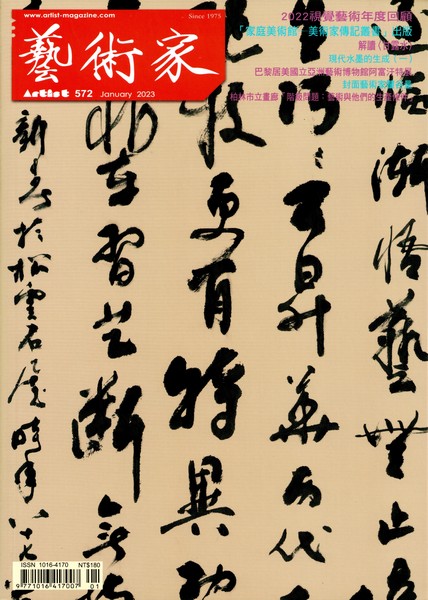 www.artist-magazine.com
Since 1975
藝術家
Artist 572 January 2023
2022視覺藝術年度回顧
「家庭美術館-美術家傳記叢書」出版
解讀《甘露水》
現代水墨的生成(一)
巴黎居美國立亞洲藝術博物館阿富汗特展
封面藝術家
柏林市立畫廊「階級問題:藝術與他們的
漸悟藝無止
昇華 代
技更有特異功
習 斷無
新春於松雲石屋時年八十七
ISSN 1016-4170 NT$180
9 771016 417007 01